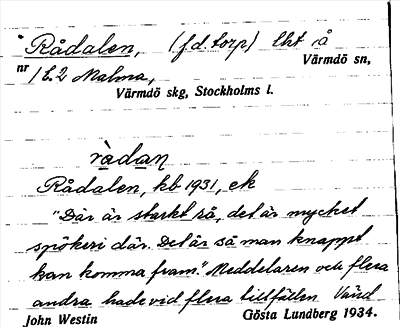 Rådalen, (f.d. torp) lht i å
nr 1 & 2 Malma, Värmdö sn,
Värmdö skg, Stockholms l.
ràdaņ
Rådalen, kb 1931, ek
"Där är starkt rå, det är mycket
spökeri där. Det är så man knappt
kan komma fram." Meddelaren och flera
andra hade vid flera tillfällen
John Westin Gösta Lundberg 1934.